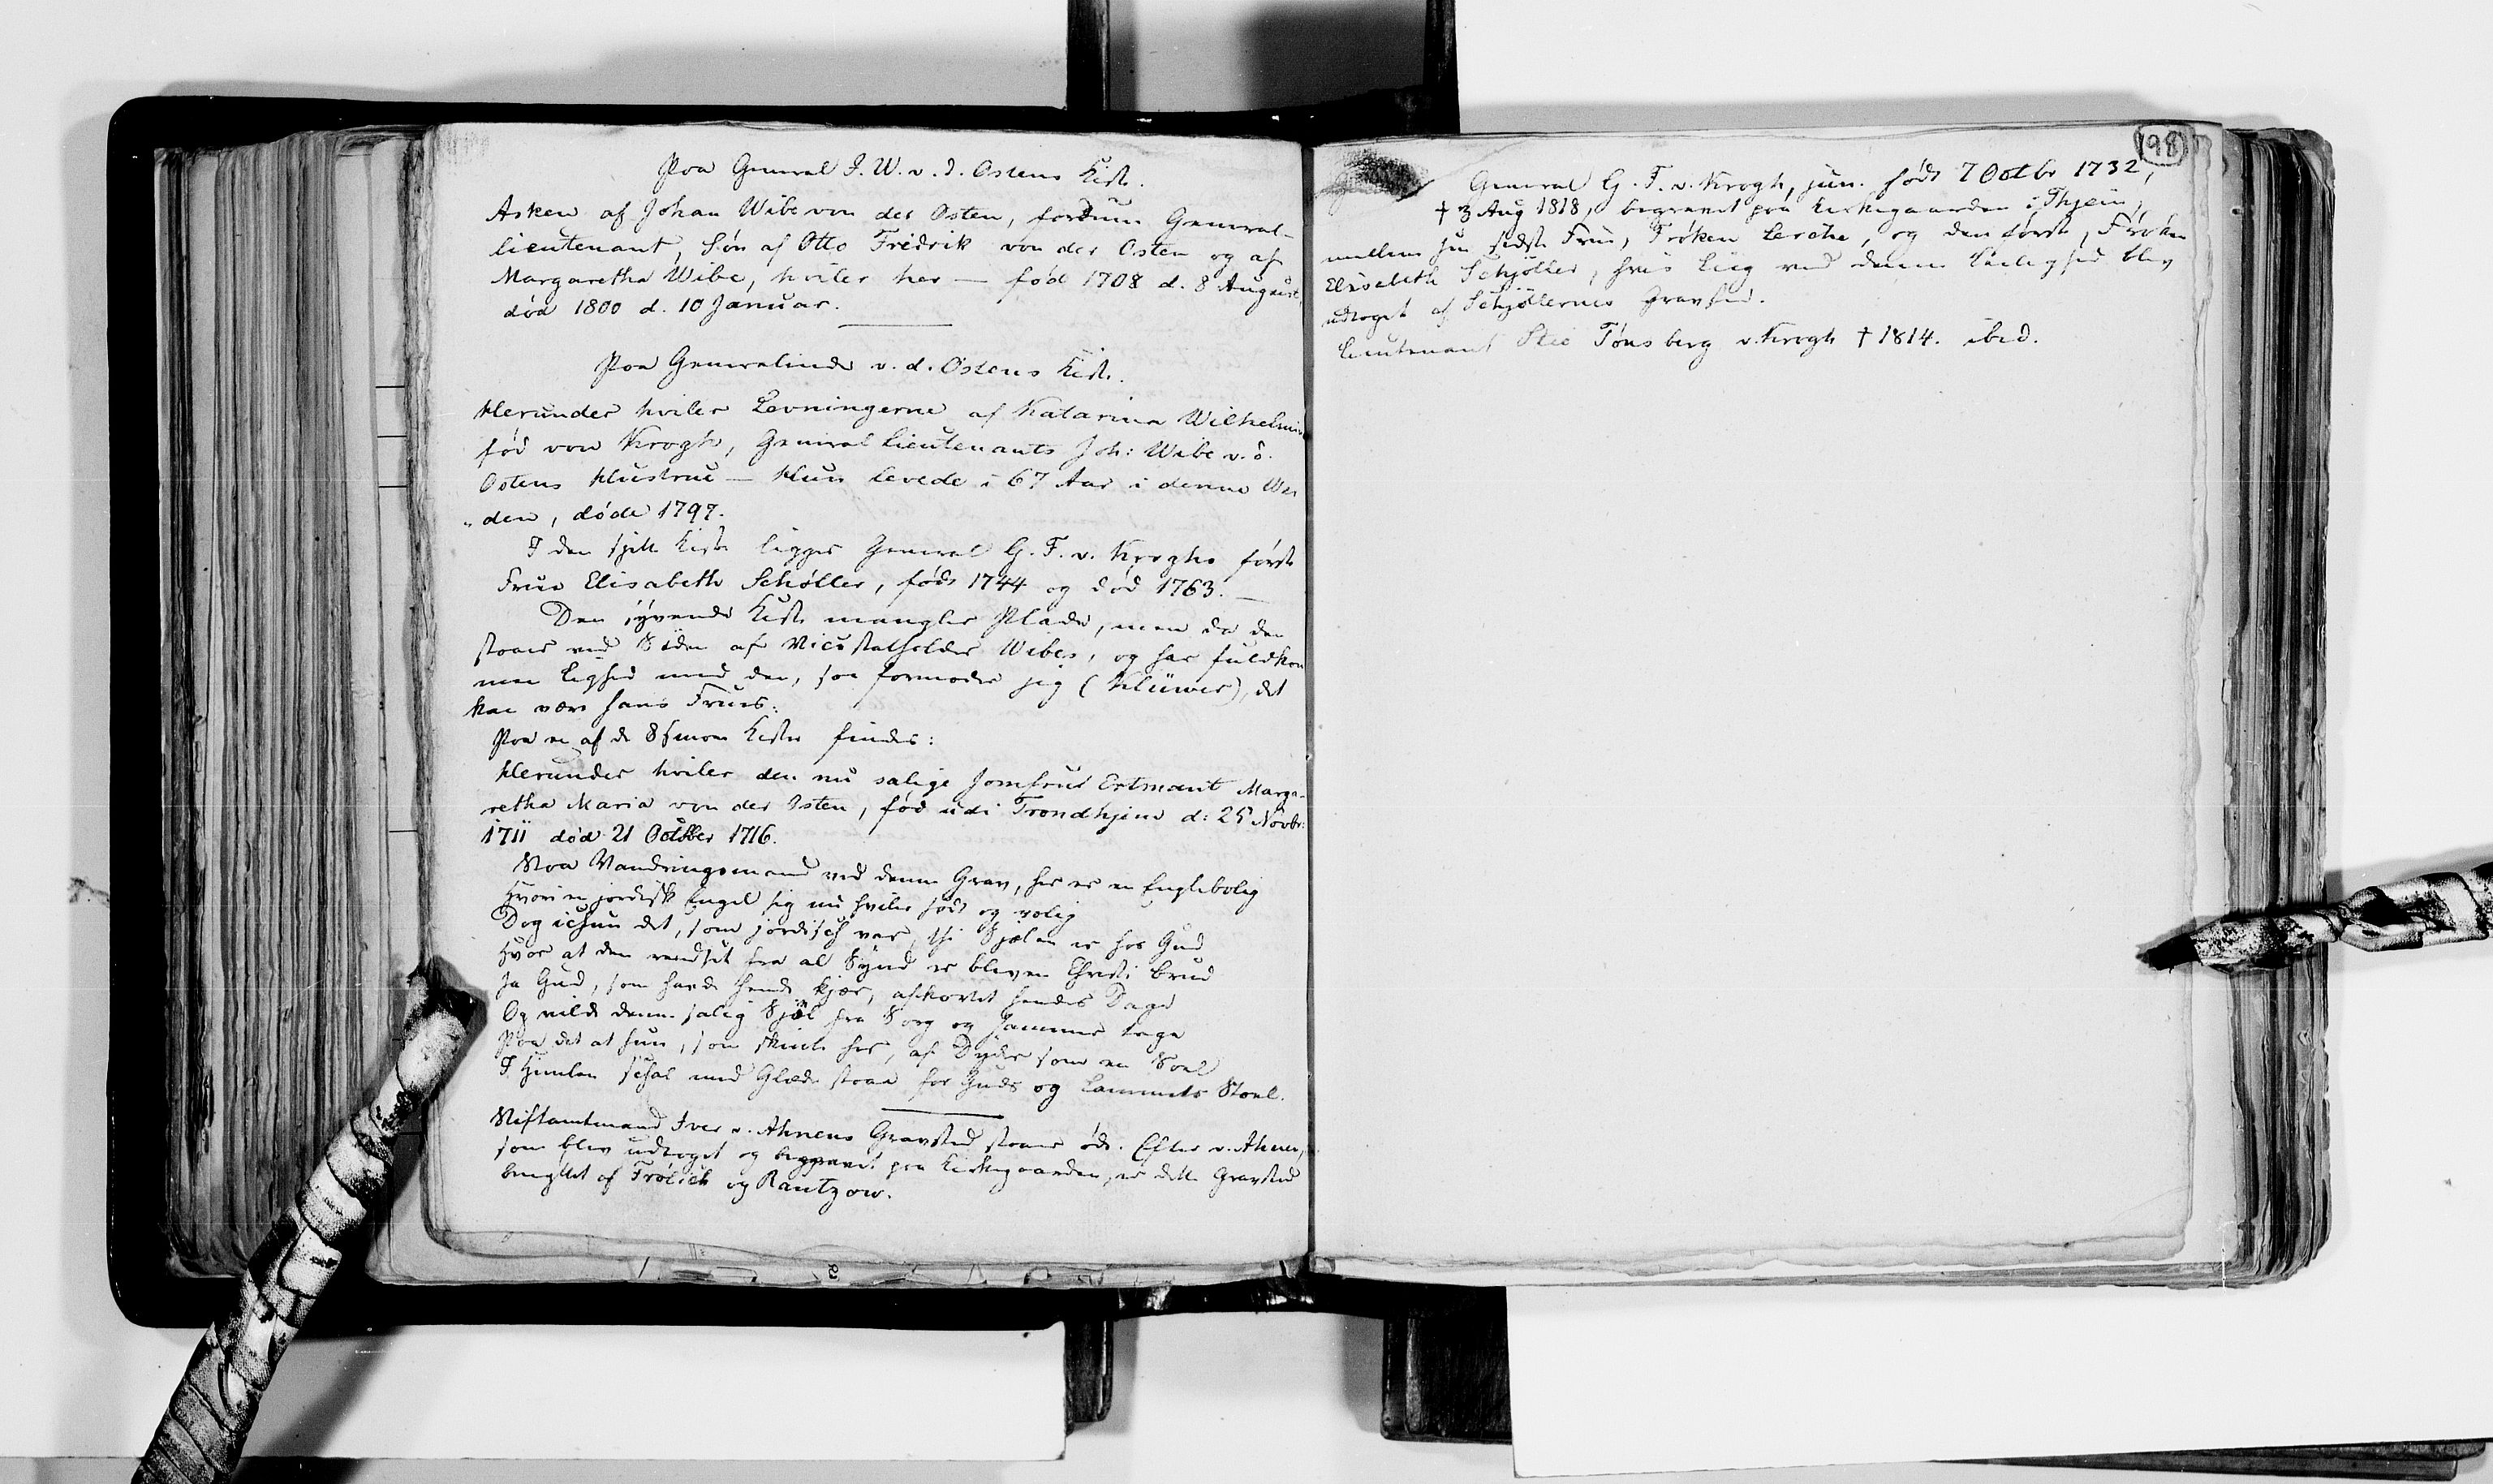 Paa General J. W. v. d. Ostens Kiste.
Asken af Johan Wibe von der Osten, fordum General-
lieutenant, Søn af Otto Fredrik von der Osten og af
Margaretha Wibe, hviler her — fød 1708 d. 8 August,
død 1800 d. 10 Januar.
Paa Generalinde v. d. Ostens Kiste.
Herunder hviler Levningerne af Katarina Wilhelmin
fød von Krogh, General Lieutenants Joh: Wibe v. d.
Ostens Hustrue — Hun levede i 67 Aar i denne Ver
"den, døde 1797.
I den sjette Kiste ligger General G. F. v. Kroghs første
Frue Elisabeth Schøller, født 1744 og død 1763. —
Den syvende Kiste mangler Plade, men da den
staaer ved Siden af Vicestatholder Wibes, og har fuldkom
men Lighed med den, saa formoder jeg (Klüwer), det
kan være hans Frues.
Paa en af de 8 smaa Kister findes:
Herunder hviler den nu salige Jomfrue Ertmant Marga-
retha Maria von der Osten, fød udi Trondhjem d: 25 Novbr:
1711 død 21 October 1716.
Staa Vandringsmand ved denne Grav, her er en Englebolig
Hvori en jordisk Engel sig nu hviler sødt og rolig
Dog ichun det, som jordisch var, thi Sjælen er hos Gud
Hvor at den rendset fra al Synd er bleven Christi Brud
Ja Gud, som havde hende kjær, afkortet hendes Dage
Og vilde denne salig Sjæl fra Sorg og Jammer tage
Paa det at hun, som skinte her, af Dyder som en Soel
I Himlen schal med Glæde staae for Guds og Lammets Stoel.
Stiftamtmand Iver v. Ahnens Gravsted staaer øde. Efter v. Ahnen,
som blev udtaget og begravet paa Kirkegaarden, er dette Gravsted
benyttet af Frølich og Rantzow.
198
General G. F. v. Krogh, jun. født 7 Octbr 1732,
† 3 Aug 1818, begravet paa Kirkegaarden i Thjem,
mellem sin sidste Frue, Frøken Lerche, og den første, Frøken
Elisabeth Schjøller, hvis Liig ved denne Leilighed blev
udtaget af Schjøllernes Gravsted.
Lieutenant Tønsberg v. Krogh † 1814. ibid.